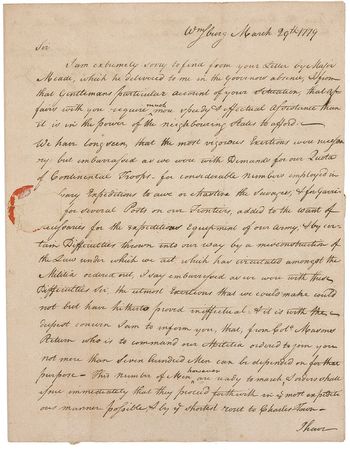 Wmsburg March 29th 1779
Sir
I am extremely sorry to find from your Letter by Major
Meade, which he delivered to me in the Governors absence, & from
that Gentlemans particular account of your Situation, that af
fairs with you require much more speedy & effectual Assistance than
it is in the power of the neighbouring States to afford.
We have long seen, that the most vigorous Exertions were necessa
ry: but embarrassed as we were with Demands for our Quota
of Continental Troops, for considerable Numbers employed in
Expeditions to awe or chastise the Savages, & for Garri
for several Posts on our Frontiers, added to the want of
for the expeditious Equipment of our Army, & by cer
tain Difficulties thrown into our way by a misconstruction of
the Law under which we act which has circulated amongst the
Militia ordered out, I say embarrassed as we were with these
Difficulties Sir, the utmost Exertions that we could make could
not but have hitherto proved ineffectual. & it is with the
deepest concern I am to inform you, that, from Colo. Masons
Return who is to command our Militia ordered to join you
not more than Seven hundred Men can be depended on for that
purpose - This number of Men however are ready to march, & orders shall
issue immediately that they proceed forthwith in ye most expediti
ous manner possible & by ye shortest rout to Charles Town -
I have